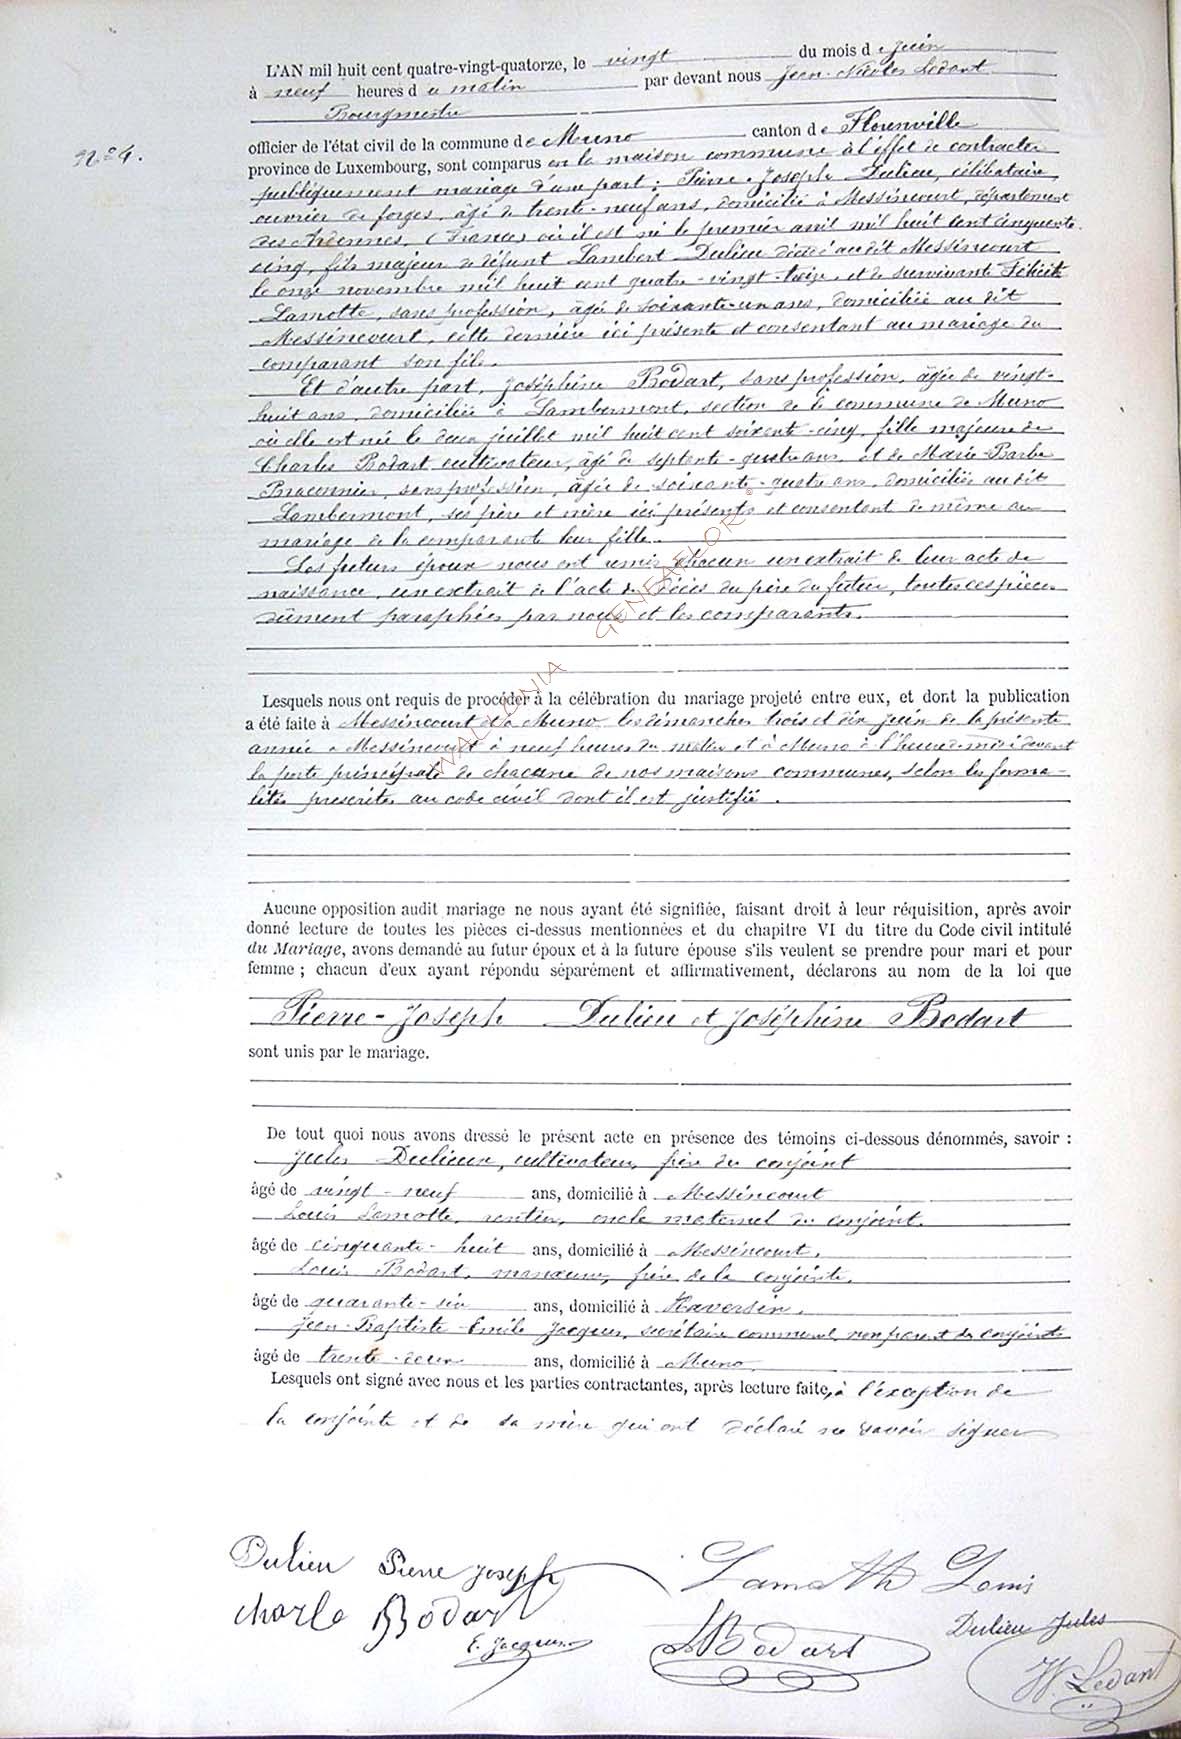 L'AN mil huit cent quatre-vingt-quatorze, le vingt du mois de Juin
à neuf heures du matin par devant nous Jean-Nicolas Ledant
Bourgmestre
officier de l'état civil de la commune de Muno canton de Florenville
N° 4.
province de Luxembourg, sont comparus en la maison commune à l'effet de contracter
publiquement mariage d'une part: Pierre-Joseph Dulieu, célibataire,
ouvrier de forges, âgé de trente-neuf ans, domicilié à Messincourt, département
des Ardennes, (France) où il est né le premier avril mil huit cent cinquante-
cinq, fils majeur de défunt Lambert Dulieu décédé au dit Messincourt
le onze novembre mil huit cent quatre-vingt-treize, et de survivante Félicité
Lamotte, sans profession, âgée de soixante-un ans, domiciliée au dit
Messincourt, cette dernière ici présente et consentant au mariage du
comparant son fils.
Et d'autre part, Joséphine Bodart, sans profession, âgée de vingt-
huit ans, domiciliée à Lambermont, section de la commune de Muno
où elle est née le deux juillet mil huit cent soixante-cinq, fille majeure de
Charles Bodart, cultivateur, âgé de septante-quatre ans, et de Marie-Barbe
Braconnier, sans profession, âgée de soixante-quatre ans, domiciliés au dit
Lambermont, ses père et mère ici présents et consentant de même au
mariage de la comparante leur fille.
Les futurs époux nous ont remis chacun un extrait de leur acte de
naissance, un extrait de l'acte de décès du père du futur, toutes ces pièces
dûment paraphées par nous et les comparants.
Lesquels nous ont requis de procéder à la célébration du mariage projeté entre eux, et dont la publication
a été faite à Messincourt et à Muno, les dimanches trois et dix juin de la présente
année à Messincourt à neuf heures du matin et à Muno à l'heure de midi devant
la porte principale de chacune de nos maisons communes, selon les forma-
lités prescrites au code civil dont il est justifié.
Aucune opposition audit mariage ne nous ayant été signifiée, faisant droit à leur réquisition, après avoir
donné lecture de toutes les pièces ci-dessus mentionnées et du chapitre VI du titre du Code civil intitulé
du Mariage, avons demandé au futur époux et à la future épouse s'ils veulent se prendre pour mari et pour
femme ; chacun d'eux ayant répondu séparément et affirmativement, déclarons au nom de la loi que
Pierre-Joseph Dulieu et Joséphine Bodart
sont unis par le mariage.
De tout quoi nous avons dressé le présent acte en présence des témoins ci-dessous dénommés, savoir :
Jules Dulieux, cultivateur, frère du conjoint
âgé de vingt-neuf ans, domicilié à Messincourt
Louis Lamotte, rentier, oncle maternel du conjoint.
âgé de cinquante-huit ans, domicilié à Messincourt.
Louis Bodart, manœuvre, frère de la conjointe.
âgé de quarante-six ans, domicilié à Haversin.
Jean-Baptiste-Emile Jacques, secrétaire communal, non parent des conjoints
âgé de trente-deux ans, domicilié à Muno
Lesquels ont signé avec nous et les parties contractantes, après lecture faite, à l'exception de
la conjointe et de sa mère qui ont déclaré ne savoir signer
Dulieu Pierre Joseph
Lamotth Louis
Charle Bodart
Dulieu Jules
E. Jacques
LBodart
N. Ledant
WALLONIA GENEAFLOR